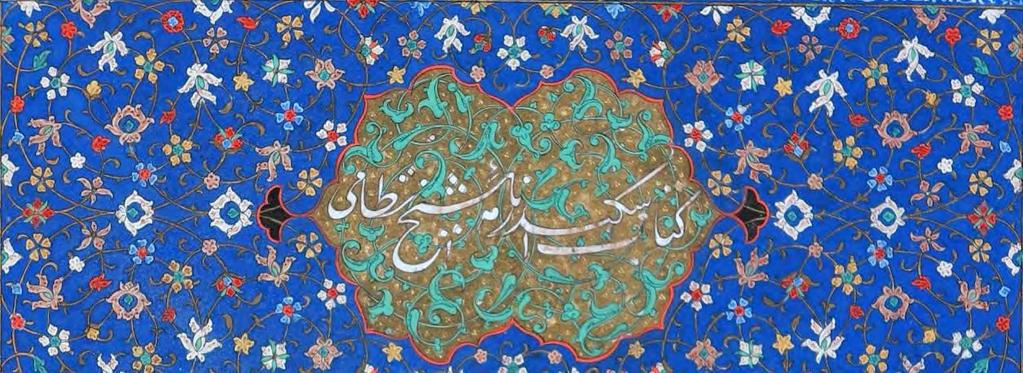 کتاب اسکندر نامه از شیخ نظامی